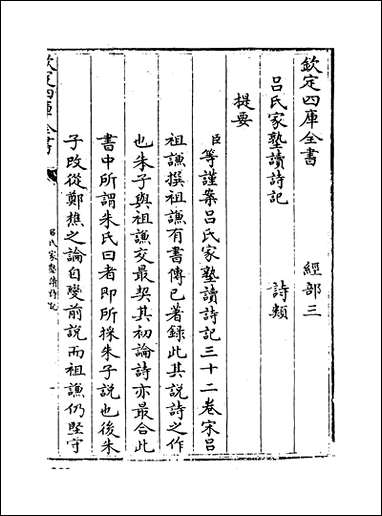 欽定四庫全書 經部三
呂氏家塾讀詩記 詩類
提要
臣等謹案呂氏家塾讀詩記三十二卷宋呂
祖謙撰祖謙有書傳已著録此其說詩之作
也朱子與祖謙交最契其初論詩亦最合此
書中所謂朱氏曰者即所採朱子說也後朱
子改從鄭樵之論自變前說而祖謙仍堅守
欽定四庫全書
呂氏家塾讀詩記